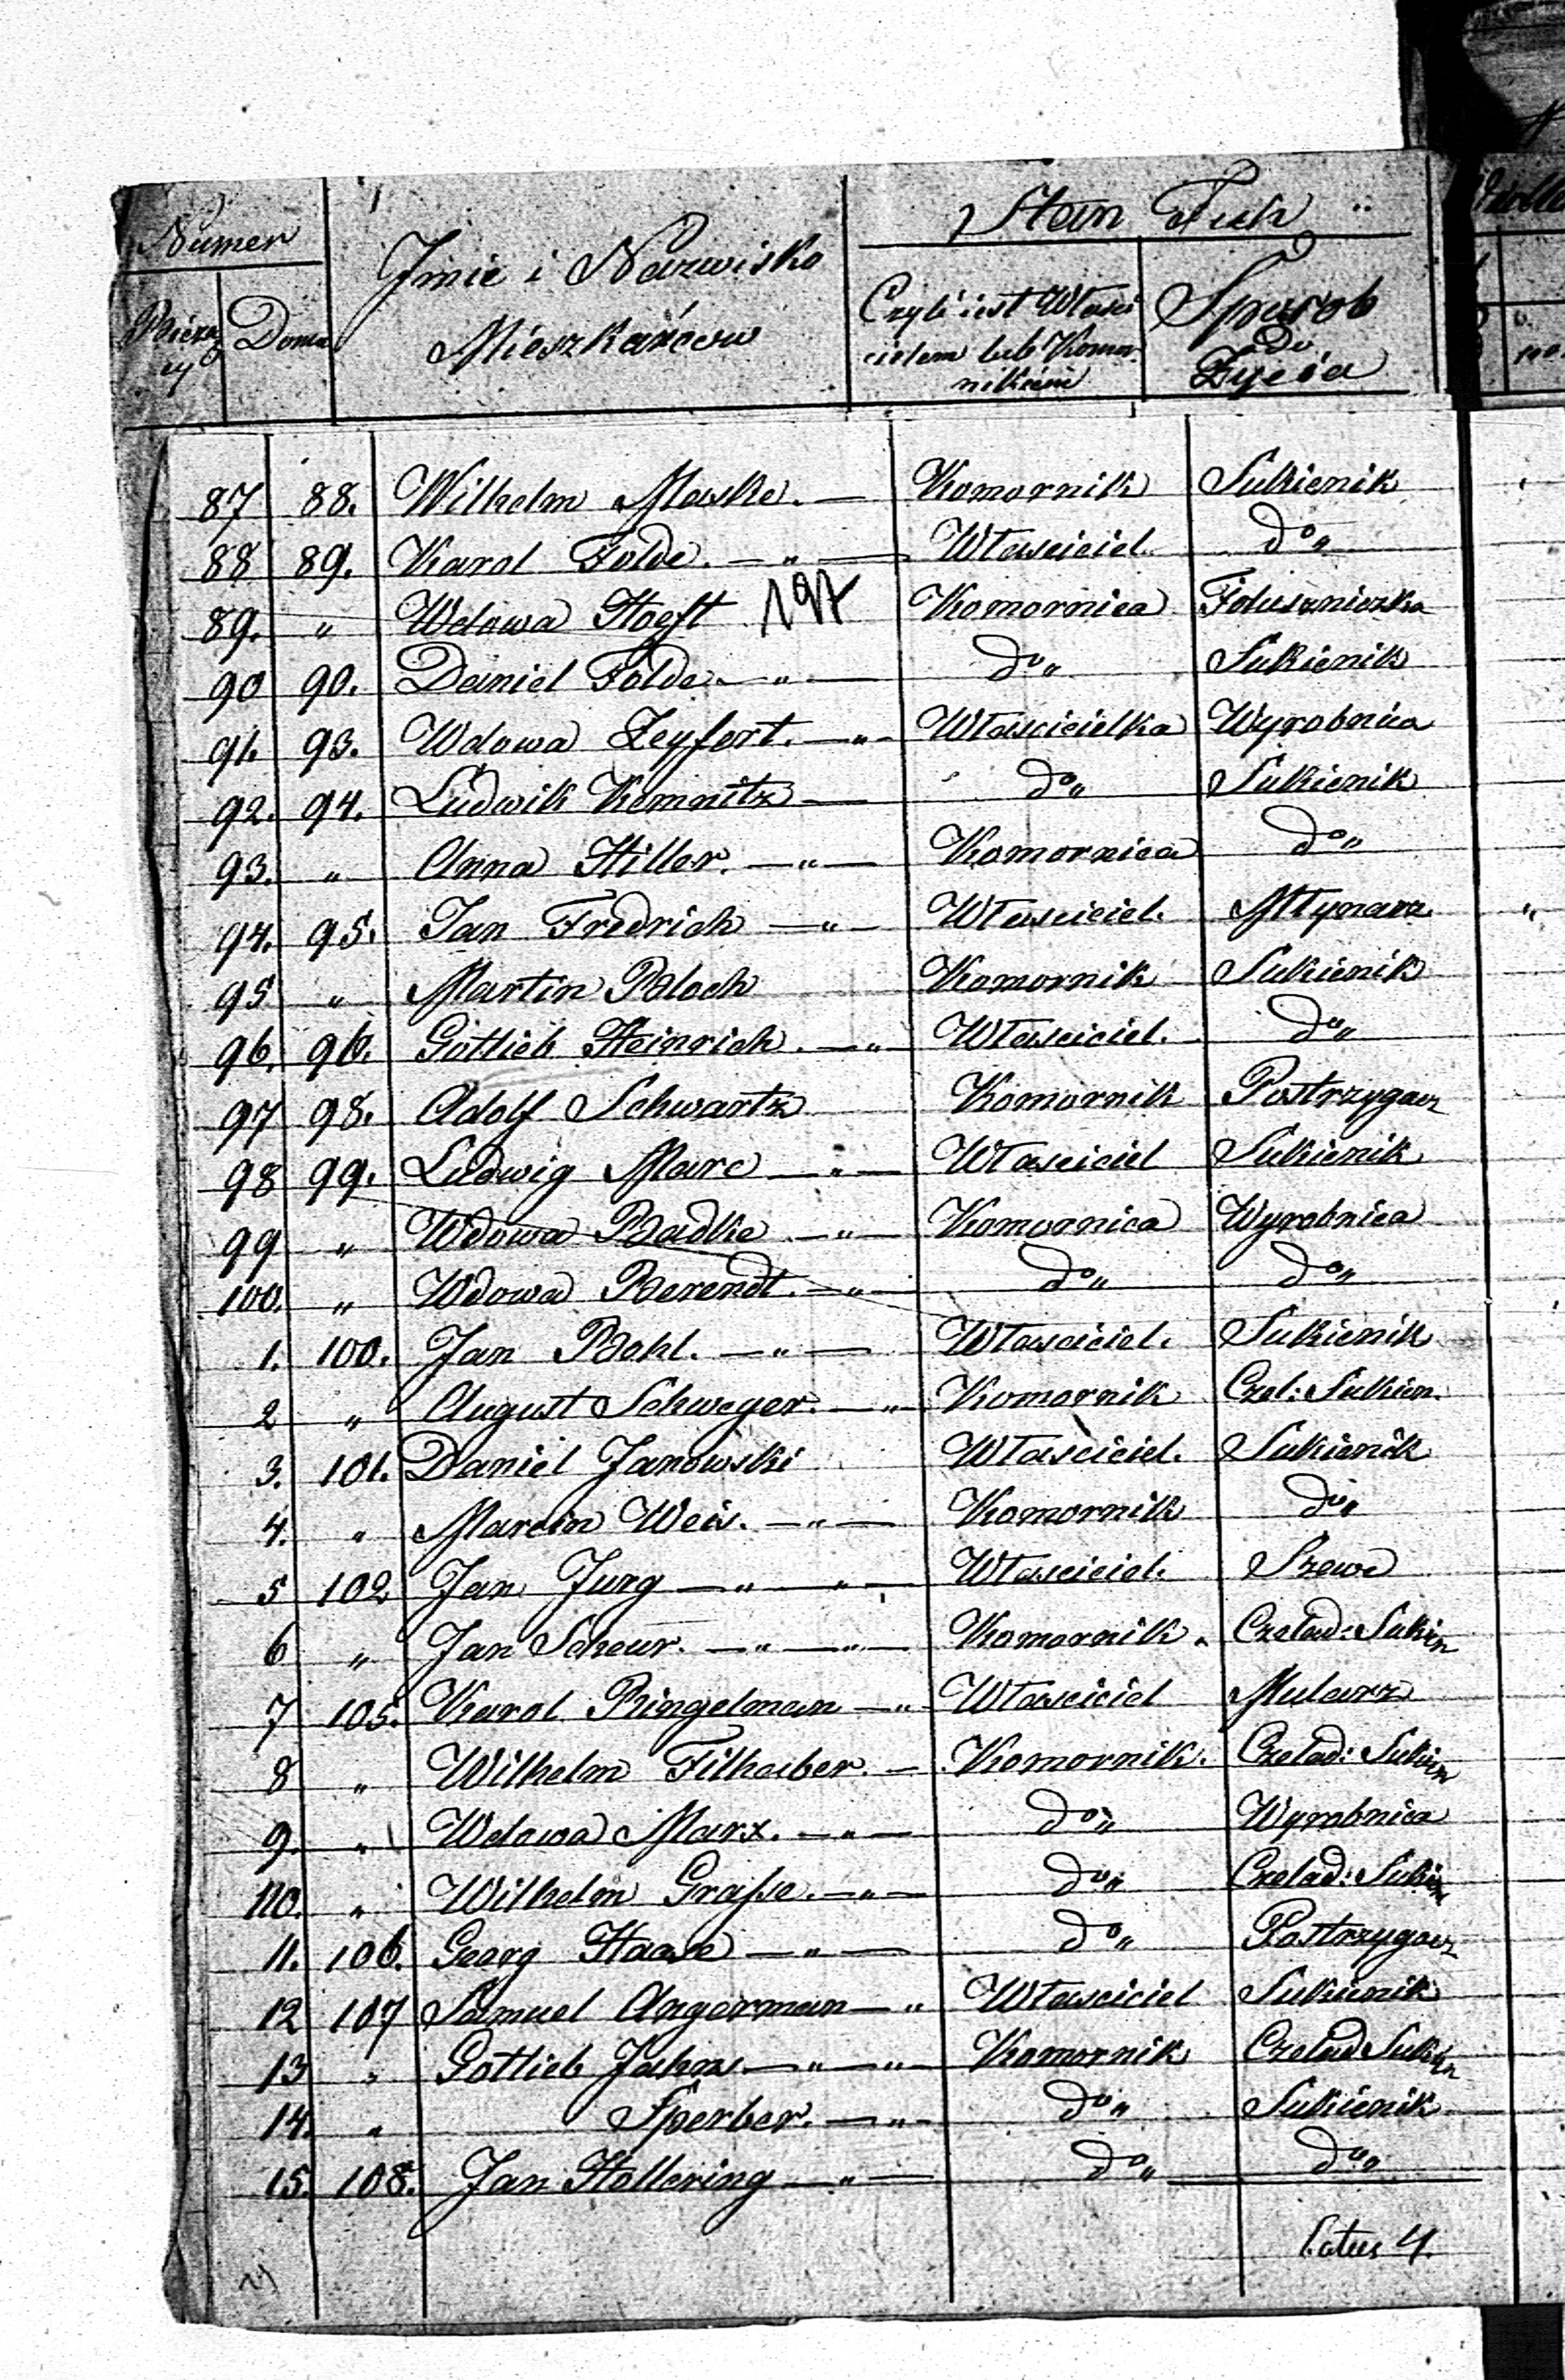 Numer
Imie i Nazwisko Mieszkańcow
Stan Tych
Bieżący
Domu
Czyli iest Właścicielem lub Komornikiem
Sposob do Życia
87 88. Wilhelm Maske. — Komornik Sukienik
88 89. Karol Folde. — „ — Własciciel. do „
89. „ Wdowa Hoeft 197 Komornica Foluszniczka
90 90. Daniel Folde — „ — do „ Sukienik
91. 93. Wdowa Zeyfert. — „ — Włascicielka Wyrobnica
92. 94. Ludwik Kemnitz — do „ Sukienik
93. „ Anna Hiller. — „ — Komornica do „
94. 95. Jan Fredrich — „ — Własciciel. Młynarz „
95 „ Martin Bloch Komornik Sukienik
96. 96. Gottlieb Heinrich. — „ Własciciel. do „
97 98. Adolf Schwartz Komornik Postrzygacz
98 99. Ludwig Marc — „ — Własciciel Sukienik
99 „ Wdowa Badke — „ — Komornica Wyrobnica
100. „ Wdowa Berendt. — „ — do „ do „
1. 100. Jan Bohl. — „ — Własciciel. Sukienik
2 „ August Schweger. — „ — Komornik Czel: Sukien.
3. 101. Daniel Janowski Własciciel. Sukienik
4. „ Marcin Weis. — „ — Komornik do „
5 102 Jan Jurg — „ — „ — Własciciel. Szewc
6 „ Jan Scheur. — „ — „ — Komornik. Czelad: Sukien
7 105. Karol Ringelman — „ — Własciciel Mularz
8 „ Wilhelm Filhaber. — Komornik. Czelad: Sukien
9. „ Wdowa Marx. — „ — do „ Wyrobnica
110. „ Wilhelm Grasse. — „ — do „ Czelad: Sukien
11. 106. Georg Haase — „ — do „ Postrzygacz
12 107 Samuel Angerman — „ Własciciel Sukienik
13 „ Gottlieb Jahns — „ — „ Komornik Czelad Sukien
14. „ Sperber. — „ — do „ Sukienik
15. 108. Jan Hollering — „ — do „ do „
Latus 4.